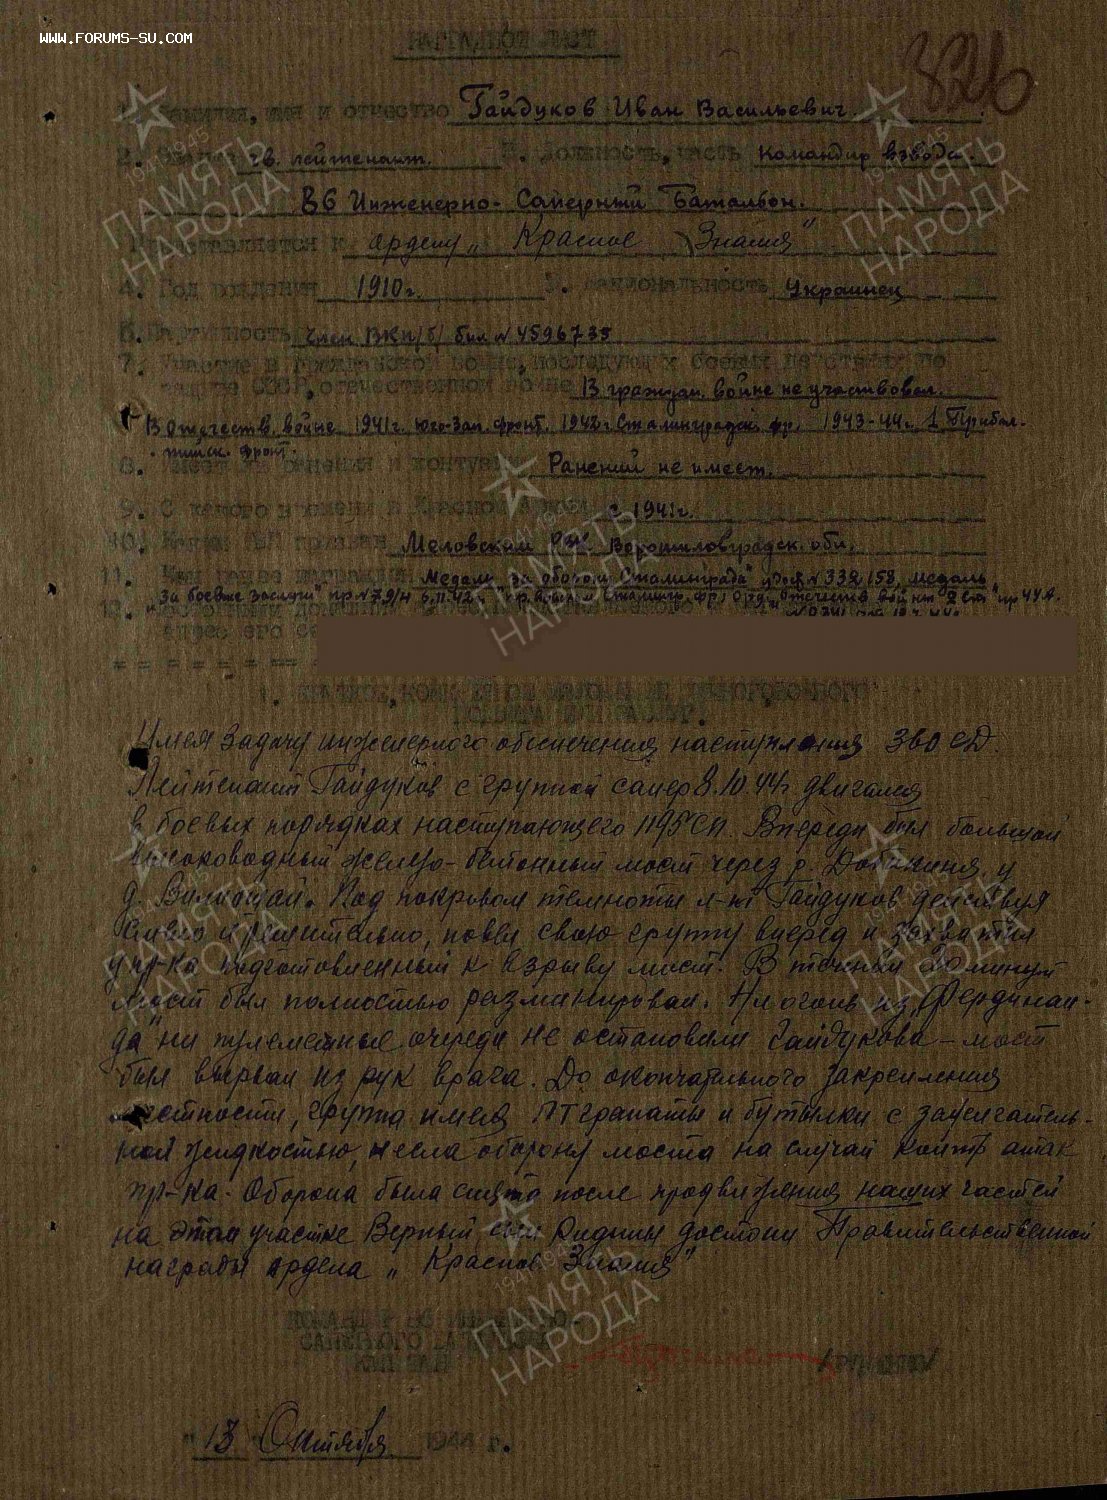 WWW.FORUMS-SU.COM
НАГРАДНОЙ ЛИСТ
326
Фамилия, имя и отчество Гайдуков Иван Васильевич
2. Звание гв. лейтенант. 3. Должность, часть Командир взвода.
86 Инженерно-Саперный Батальон.
Представляется к ордену „Красное Знамя"
4. Год рождения 1910г. 5. Национальность Украинец
6. Партийность член ВКП/б/ бил №4596735
7. Участие в гражданской войне, последующих боевых действиях по
защите СССР, отечественной войне В граждан. войне не участвовал.
В Отечеств. войне 1941г. Юго-Зап. фронт, 1942г. Сталинградск. фр, 1943-44г. 1 Прибал-
тийск. фронт.
8. Имеет ли ранения и контузии Ранений не имеет.
9. С какого времени в Красной Армии с 1941г.
10. Каким РВК призван Меловский РВК Ворошиловградск. обл.
11. Чем ранее награжден Медаль „за оборону Сталинграда" удост №332158, медаль
„За боевые заслуги" пр №79/н 6.11.42г. Сталингр. фр, Орд. „Отечеств войны 2 ст" пр 4 УА.
12.
адрес его
1. Краткое, конкретное изложение личного боевого
подвига или заслуг.
Имея задачу инженерного обеспечения наступления 360 СД.
Лейтенант Гайдуков с группой сапер 8.10.44г двигался
в боевых порядках наступающего 1195 СП. Впереди был большой
высоководный железо-бетонный мост через р. у
д. Под покровом темноты л-т Гайдуков действуя
смело и решительно, повел свою группу вперед и захватил
у пр-ка подготовленный к взрыву мост. В течении минут
мост был полностью разминирован. Ни огонь из „Фердинан-
да" ни пулеметные очереди не остановили Гайдукова - мост
был вырван из рук врага. До окончательного закрепления
местности, группа имея ПТ гранаты и бутылки с зажигатель-
ной жидкостью, несла оборону моста на случай контр атак
пр-ка. Оборона была снята после продвижения наших частей
на этом участке Верный сын Родины достоин Правительственной
награды ордена „Красное Знамя"
КОМАНДИР 86 ИНЖЕНЕРНО-
САПЕРНОГО БАТАЛЬОНА
"13" Октября 1944 г.
ПАМЯТЬ
НАРОДА
1941-1945
ПАМЯТЬ
НАРОДА
1941-1945
ПАМЯТЬ
НАРОДА
1941-1945
ПАМЯТЬ
НАРОДА
ПАМЯТЬ
НАРОДА
1941-1945
ПАМЯТЬ
НАРОДА